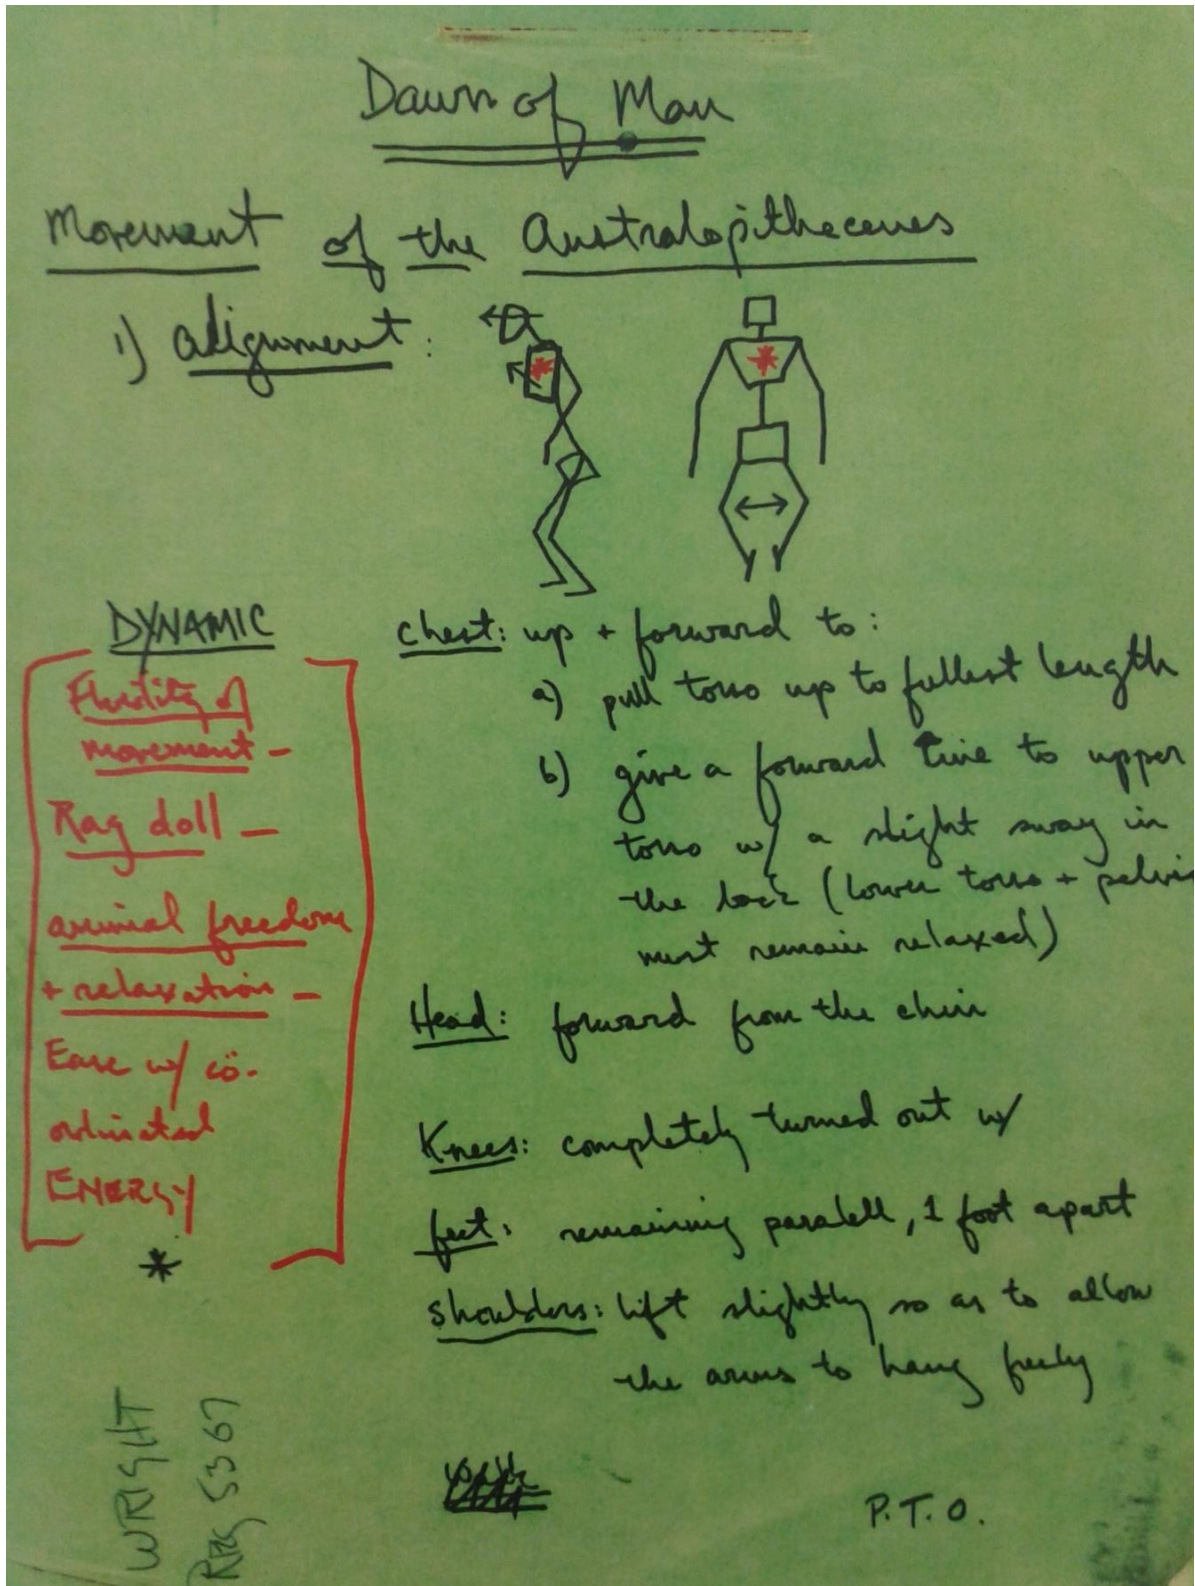 Dawn of Man
Movement of the Australopithecenes
1) alignment:
DYNAMIC
Fluidity of
movement -
Rag doll -
animal freedom
+ relaxation -
Ease w/ cö-
ordinated
ENERGY
*
chest: up + forward to:
a) pull torso up to fullest length
b) give a forward line to upper
torso w/ a slight sway in
the back (lower torso + pelvis
must remain relaxed)
Head: forward from the chin
Knees: completely turned out w/
feet: remaining paralell, 1 foot apart
shoulders: lift slightly so as to allow
the arms to hang freely
P.T.O.
WRIGHT
5367